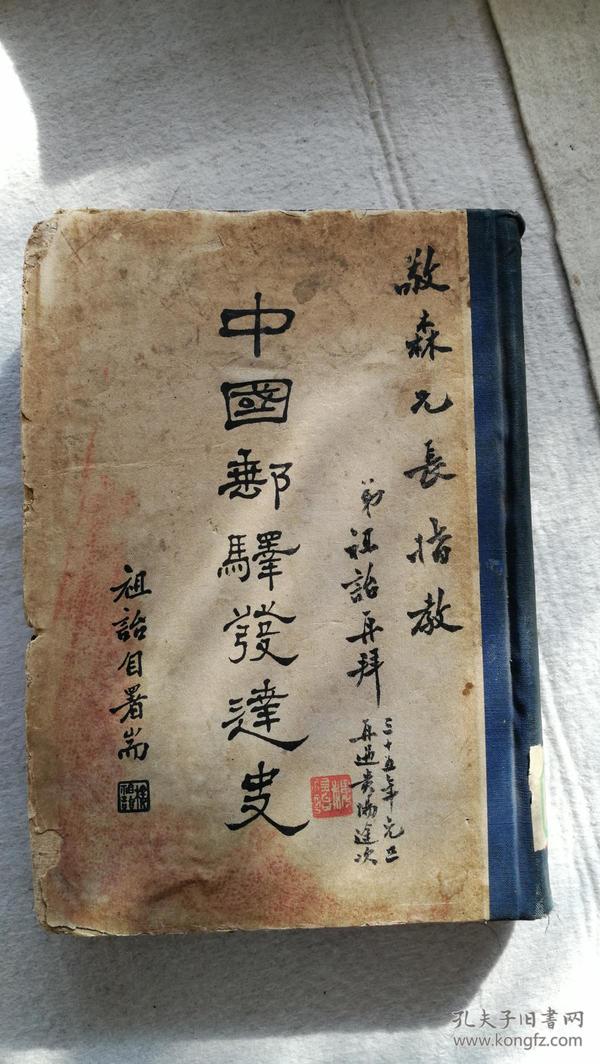 敬森兄長指教
弟祖詒再拜
三十五年元旦
再過貴陽途次
中國郵驛發達史
祖詒自署耑
孔夫子旧書网
www.kongfz.com